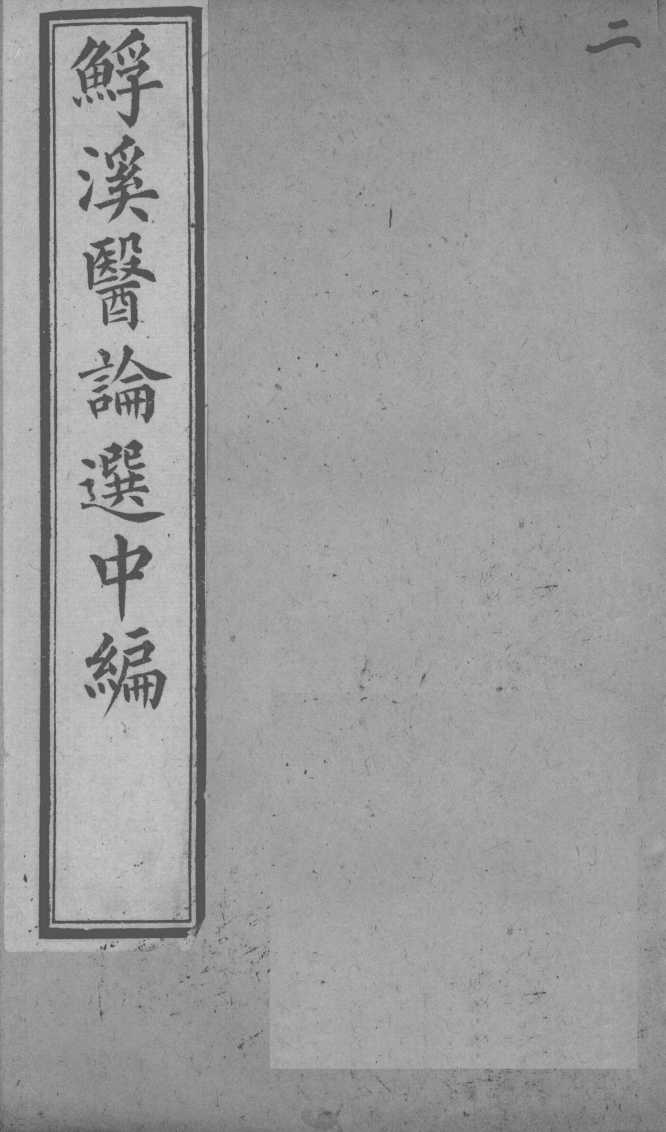 二
鯙溪醫論選中編